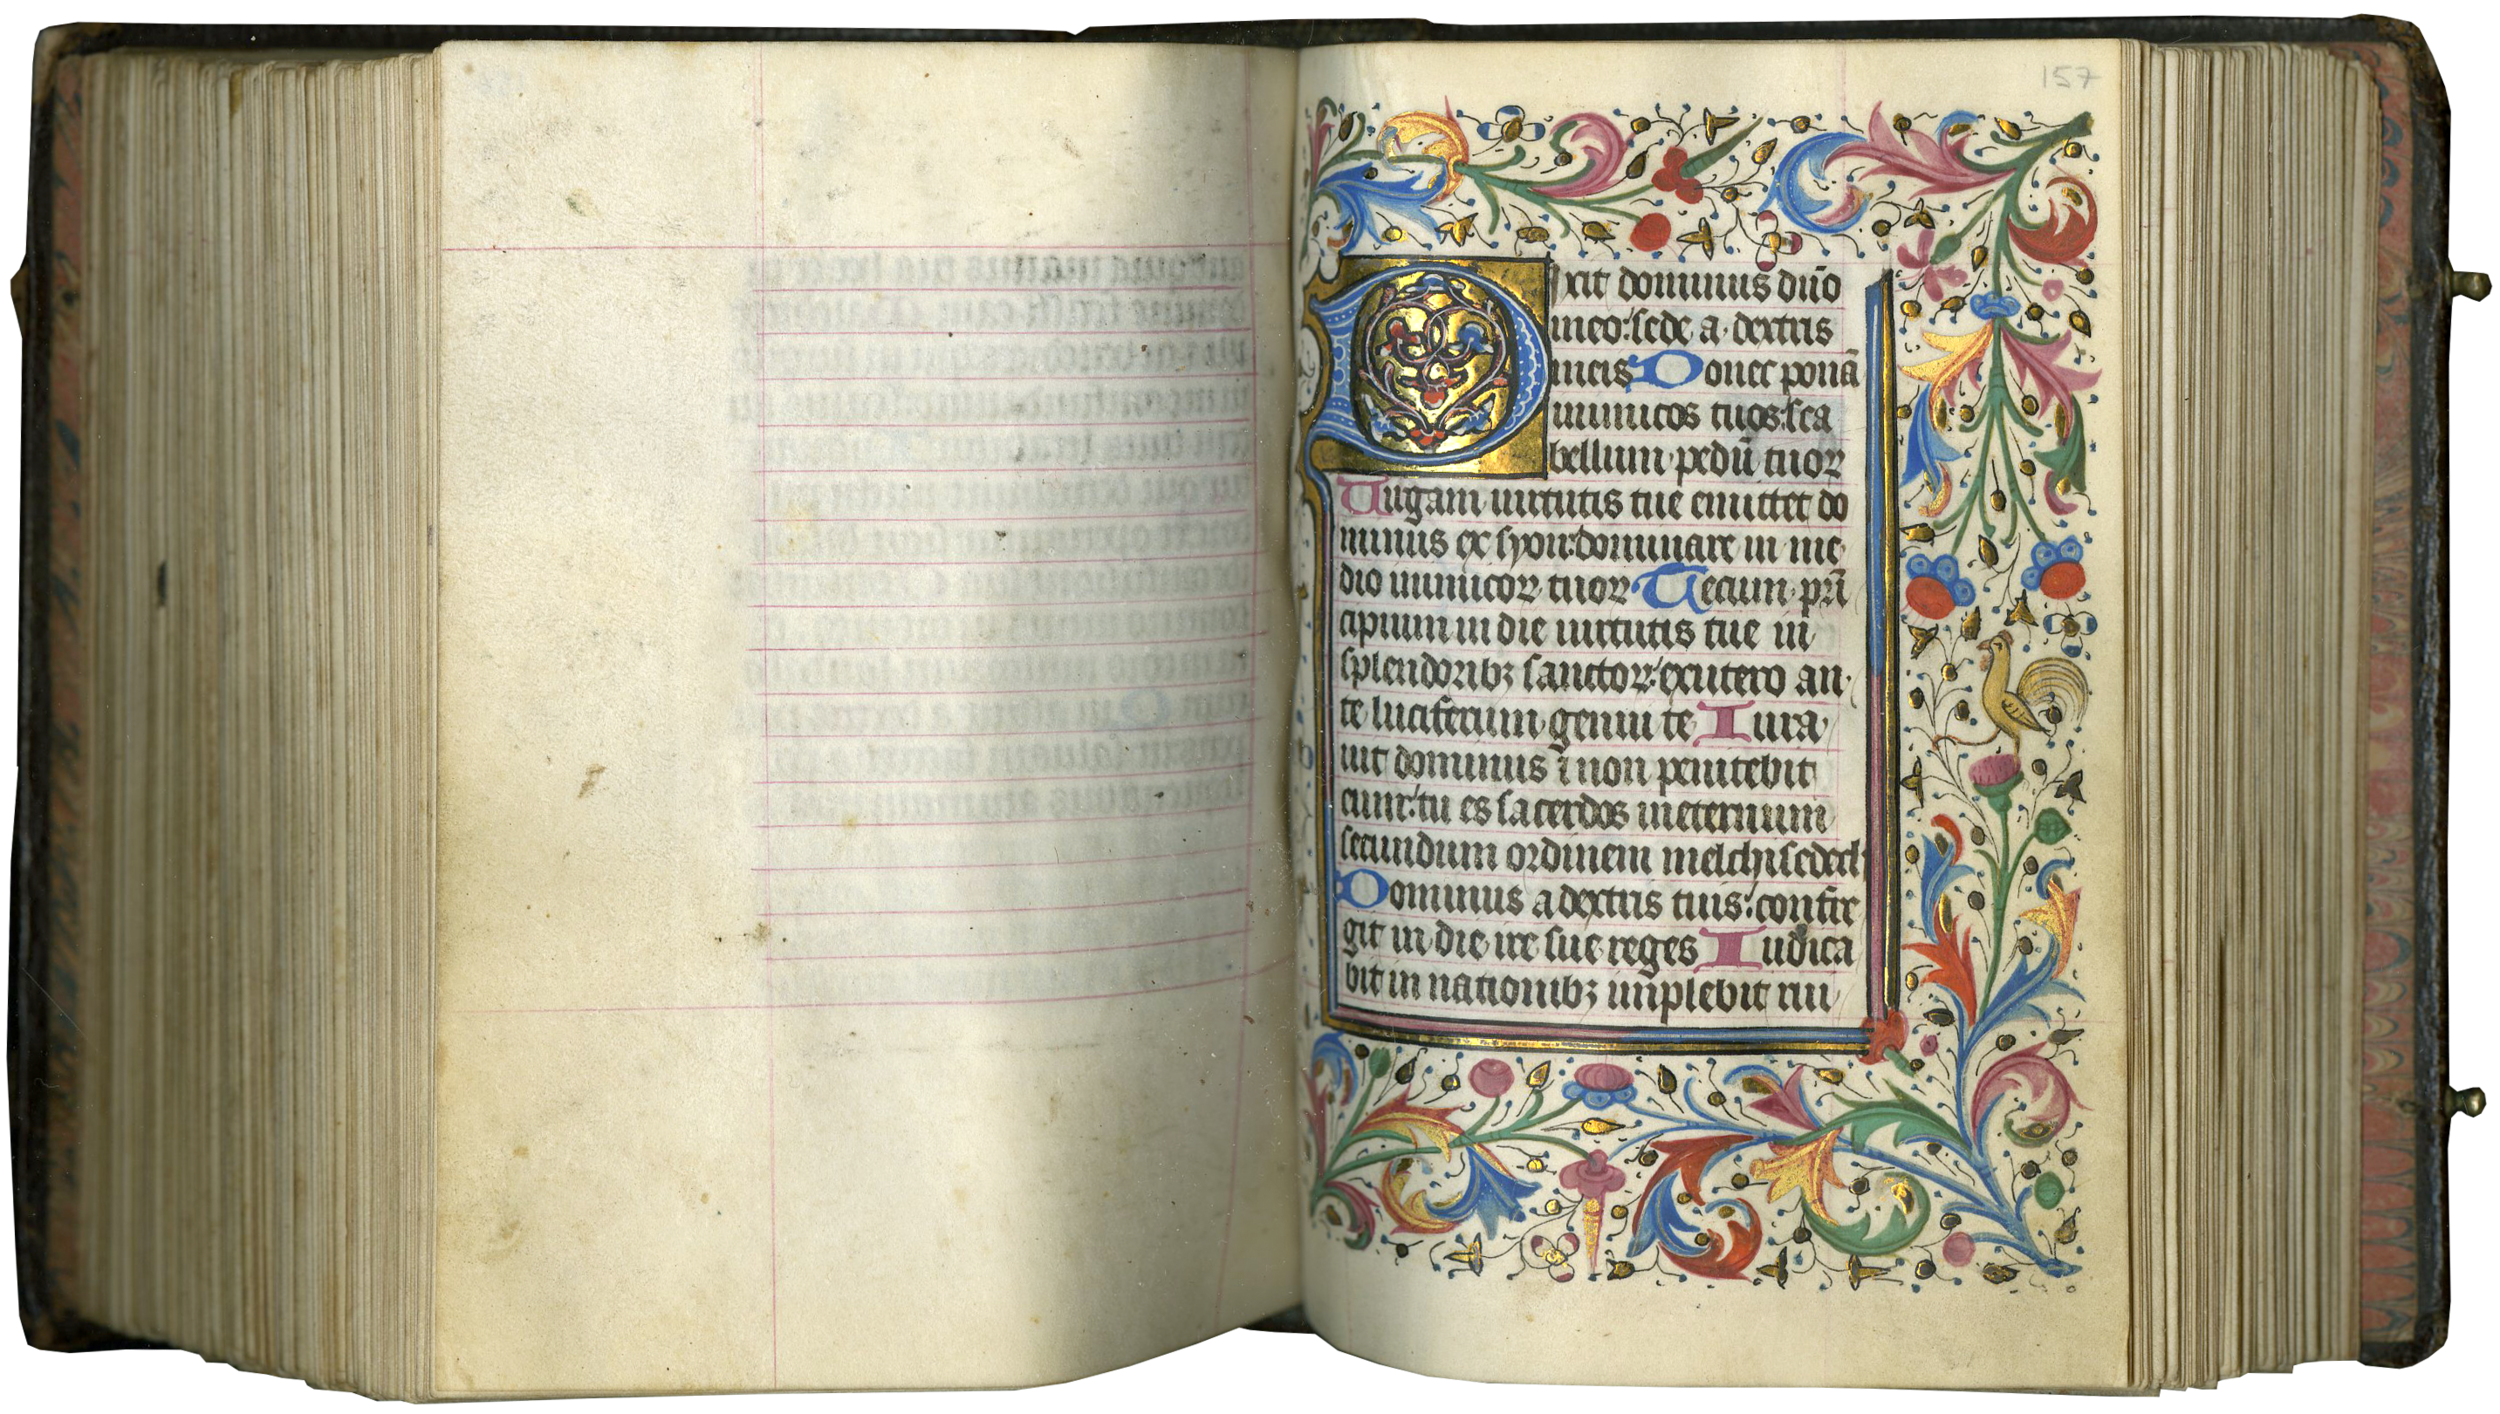 157
Dixit dominus dn̄o
meo: sede a dextris
meis Donec ponā
inimicos tuos: sca
bellum pedū tuoꝝ
Uirgam uirtutis tue emittet do
minus ex syon: dominare in me
dio inimicoꝝ tuoꝝ Tecum prī
cipium in die uirtutis tue in
splendoribꝫ sanctoꝝ: ex utero an
te luciferum genui te Iura
uit dominus ⁊ non penitebit
eum: tu es sacerdos in eternum
secundum ordinem melchisedech
Dominus a dextris tuis: confre
git in die ire sue reges Iudica
bit in nationibꝫ implebit rui